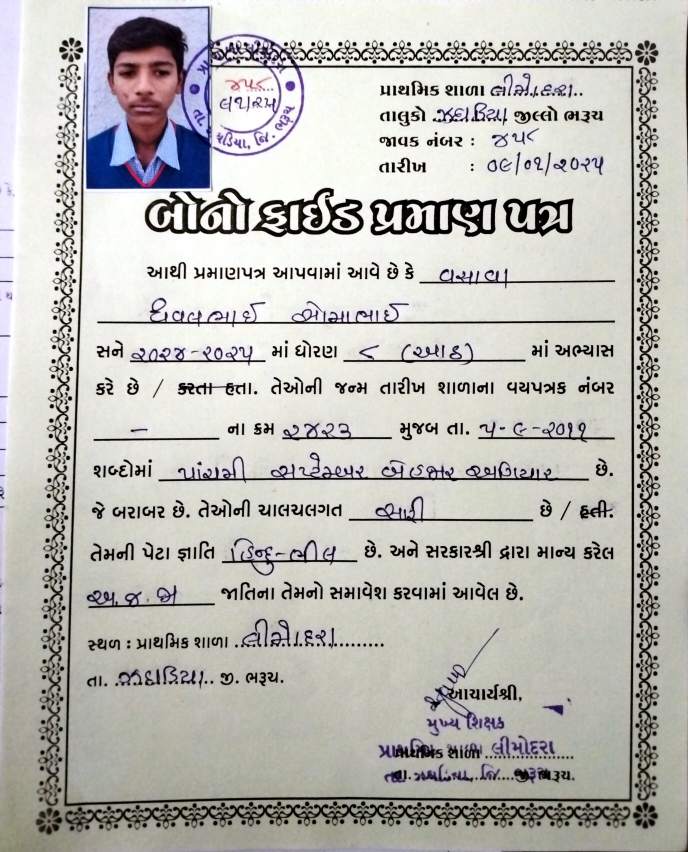 પ્રાથમિક શાળા લીમોદરા..
તાલુકો ઝઘડિયા જીલ્લો ભરૂચ
જાવક નંબર : ૪૫૮
તારીખ : ૦૯/૦૧/૨૦૨૫
૪૫૮
૯/૧/૨૫
બોનો ફાઈડ પ્રમાણ પત્ર
આથી પ્રમાણપત્ર આપવામાં આવે છે કે વસાવા
ધવલભાઈ સોમાભાઈ
સને ૨૦૨૪-૨૦૨૫ માં ધોરણ ૮ (આઠ) માં અભ્યાસ
કરે છે / કરતા હતા. તેઓની જન્મ તારીખ શાળાના વયપત્રક નંબર
- ના ક્રમ ૨૪૨૩ મુજબ તા. ૫-૯-૨૦૧૧
શબ્દોમાં પાંચમી સપ્ટેમ્બર બેહજાર અગિયાર છે.
જે બરાબર છે. તેઓની ચાલચલગત સારી છે / હતી.
તેમની પેટા જ્ઞાતિ હિન્દુ-ભીલ છે. અને સરકારશ્રી દ્વારા માન્ય કરેલ
અ.જ.જા જાતિના તેમનો સમાવેશ કરવામાં આવેલ છે.
સ્થળ : પ્રાથમિક શાળા ..લીમોદરા..........
તા. ..ઝઘડિયા.. જી. ભરૂચ.
આચાર્યશ્રી,
મુખ્ય શિક્ષક
પ્રાથમિક શાળા લીમોદરા
તા. ઝઘડિયા, જિ. ભરૂચ.